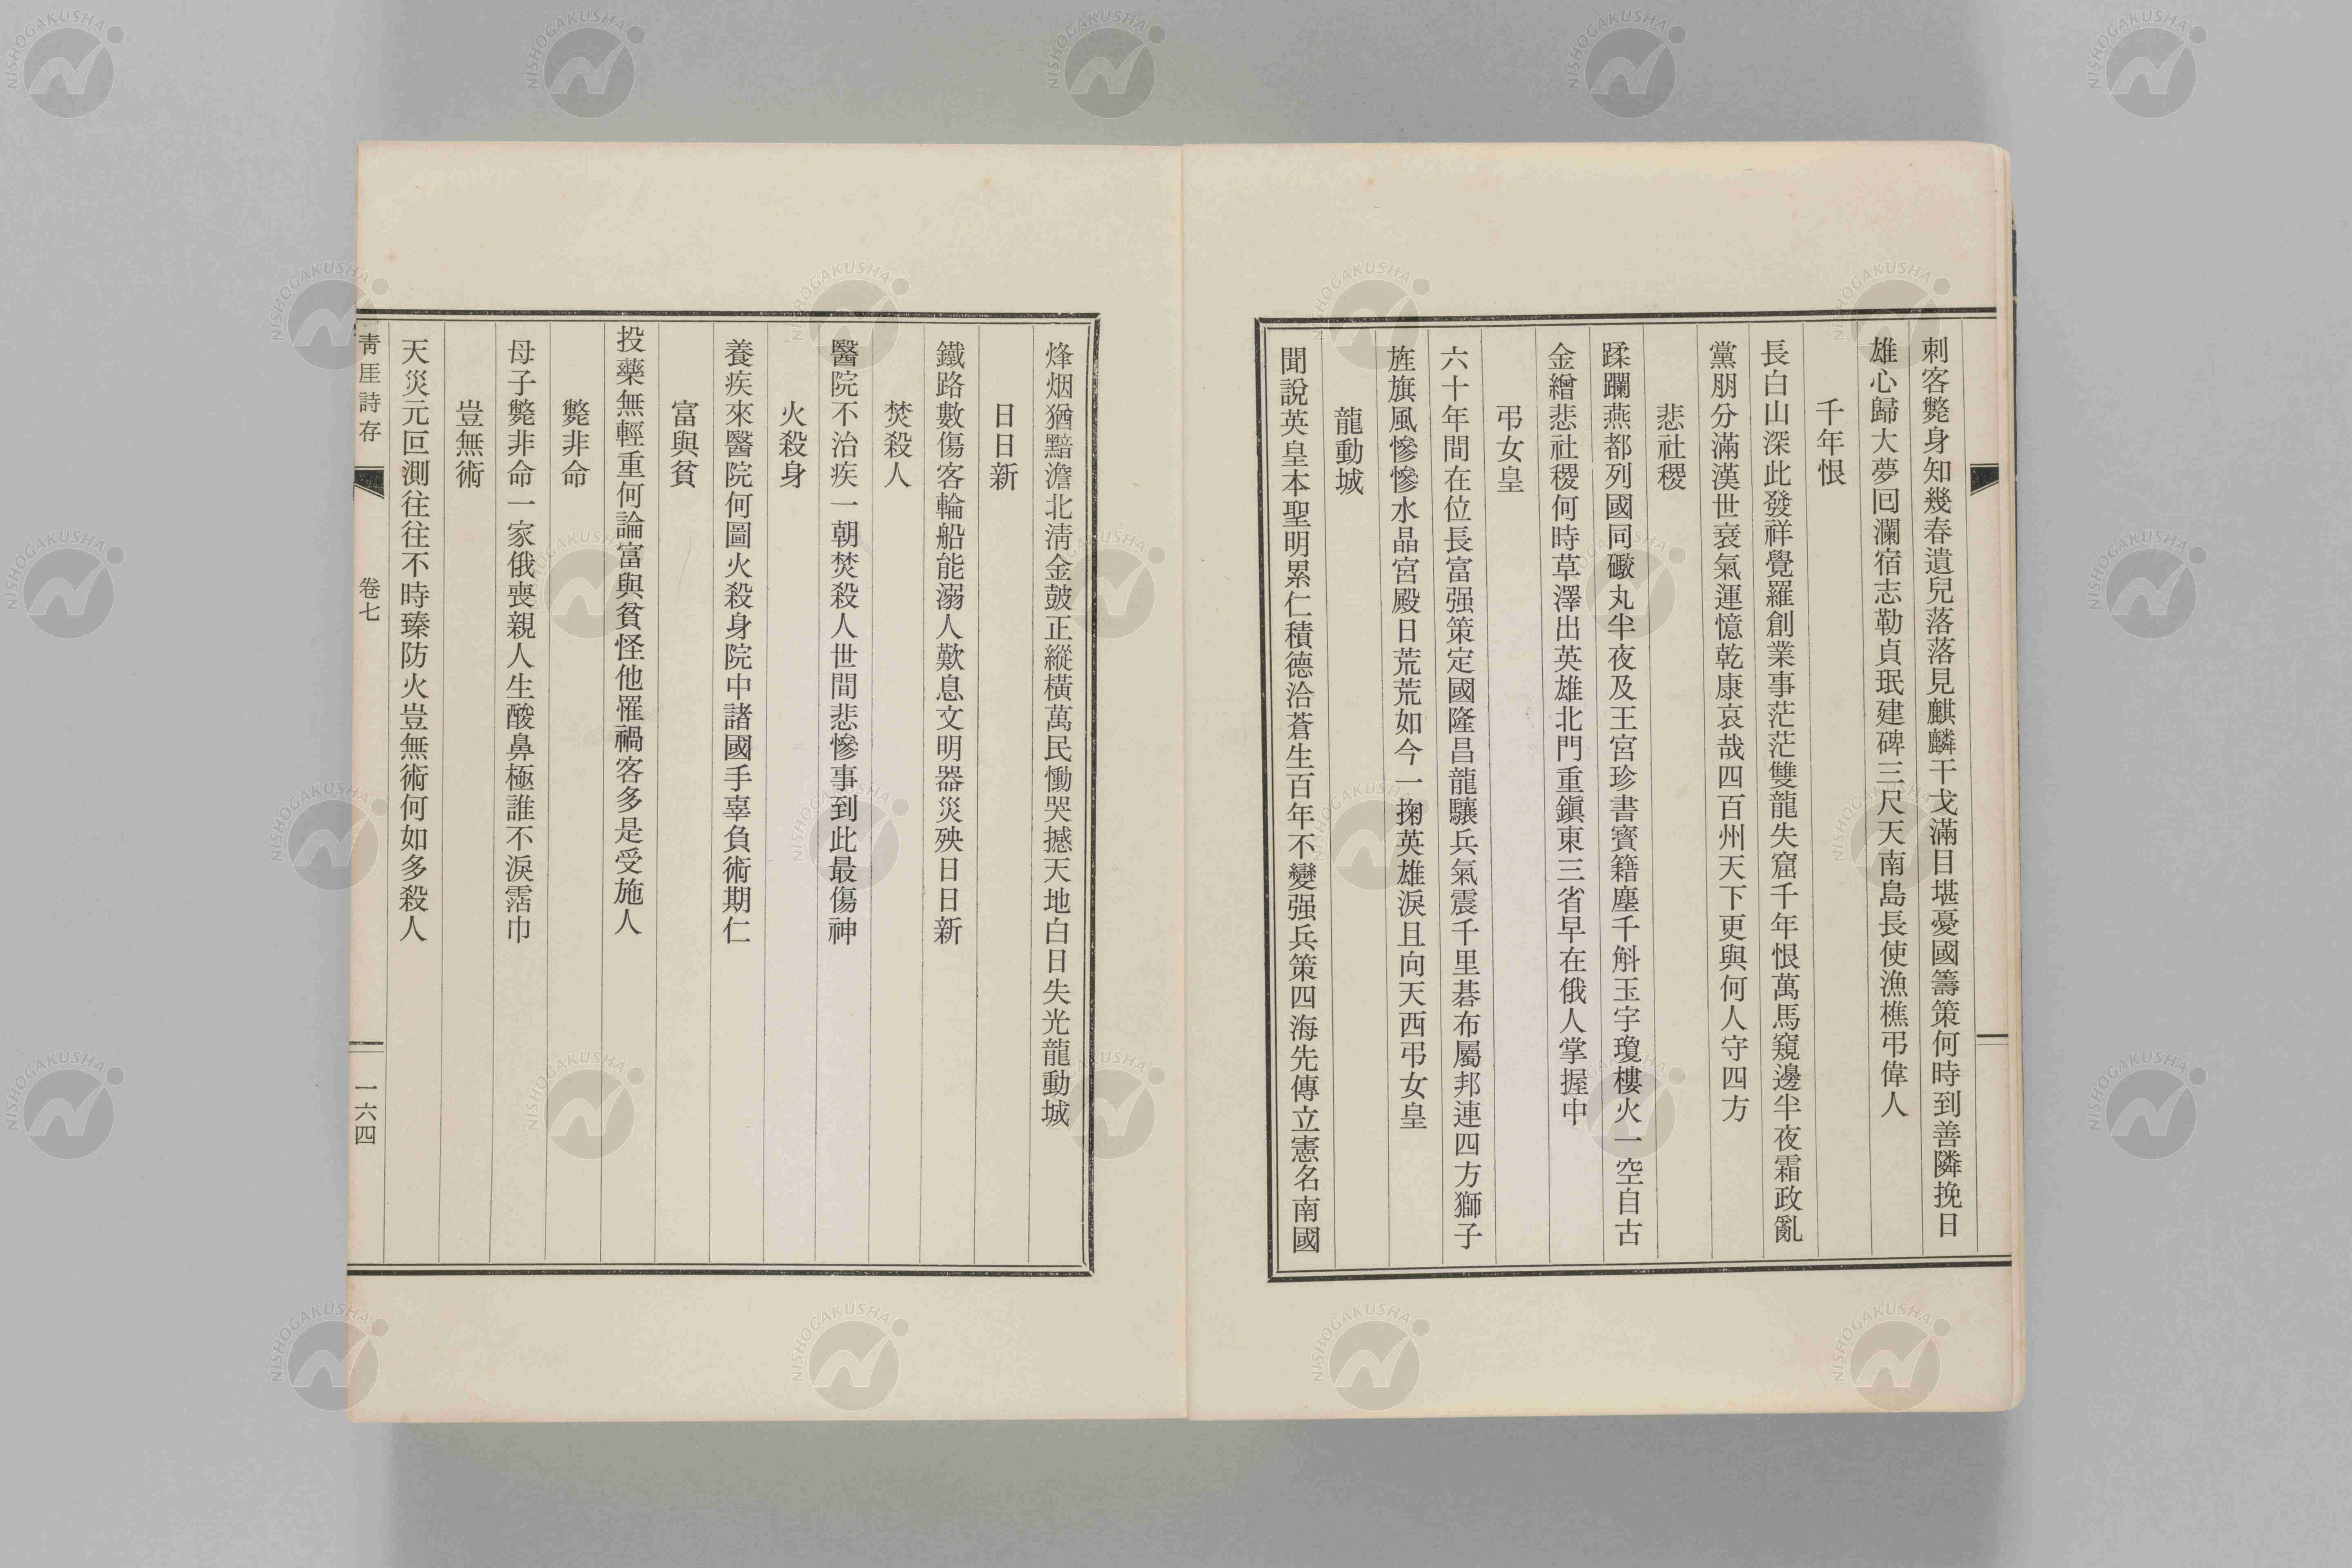 刺客斃身知幾春遺兒落落見麒麟干戈滿目堪憂國籌策何時到善隣挽日
雄心歸大夢囘瀾宿志勒貞珉建碑三尺天南島長使漁樵弔偉人
千年恨
長白山深此發祥覺羅創業事茫茫雙龍失窟千年恨萬馬窺邊半夜霜政亂
黨朋分滿漢世衰氣運憶乾康哀哉四百州天下更與何人守四方
悲社稷
蹂躙燕都列國同礮丸半夜及王宮珍書寶籍塵千斛玉宇瓊樓火一空自古
金繒悲社稷何時草澤出英雄北門重鎭東三省早在俄人掌握中
弔女皇
六十年間在位長富强策定國隆昌龍驤兵氣震千里碁布屬邦連四方獅子
旌旗風慘慘水晶宮殿日荒荒如今一掬英雄淚且向天西弔女皇
龍動城
聞說英皇本聖明累仁積德洽蒼生百年不變强兵策四海先傳立憲名南國
烽烟猶黯澹北淸金皷正縱橫萬民慟哭撼天地白日失光龍動城
日日新
鐵路數傷客輪船能溺人歎息文明器災殃日日新
焚殺人
醫院不治疾一朝焚殺人世間悲慘事到此最傷神
火殺身
養疾來醫院何圖火殺身院中諸國手辜負術期仁
富與貧
投藥無輕重何論富與貧怪他罹禍客多是受施人
斃非命
母子斃非命一家俄喪親人生酸鼻極誰不淚霑巾
豈無術
天災元叵測往往不時臻防火豈無術何如多殺人
靑厓詩存
卷七
一六四
NISHOGAKUSHA